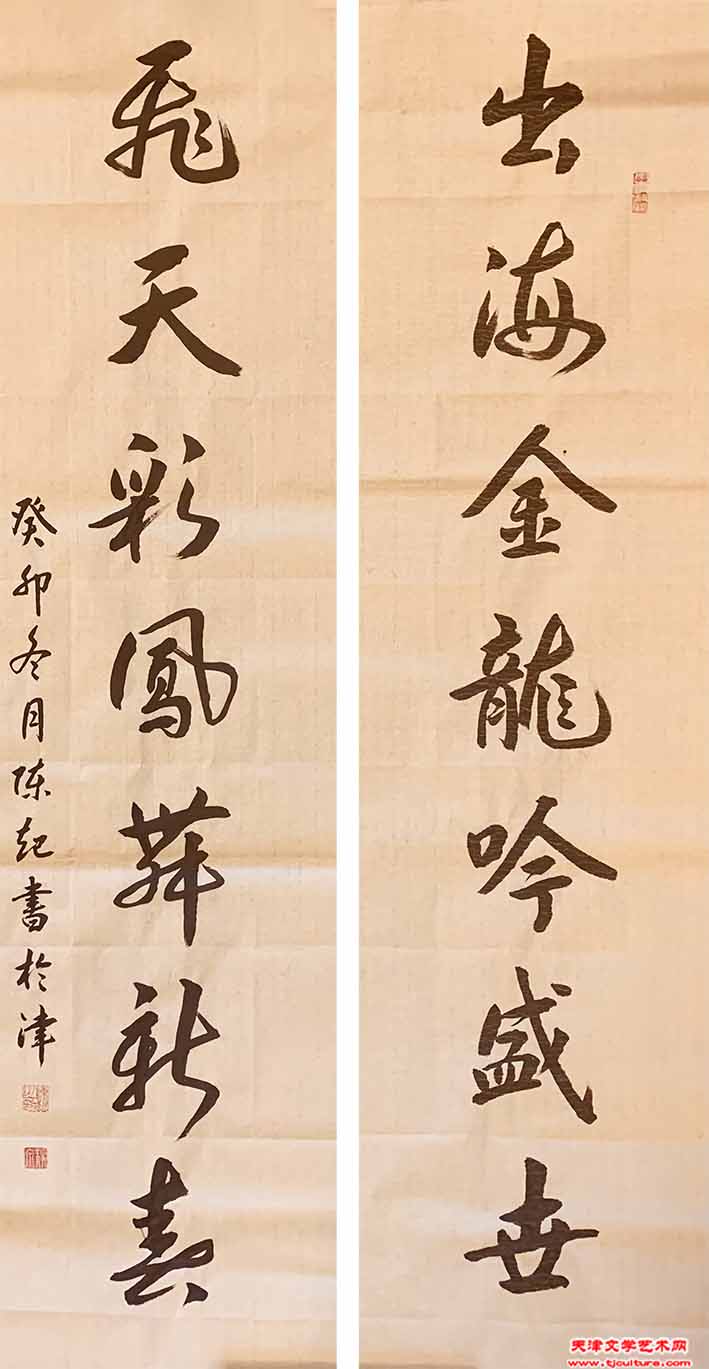 出海金龍吟盛世
飛天彩鳳舞新春
癸卯冬月陈起書於津
天津文学艺术网
www.tjculture.com